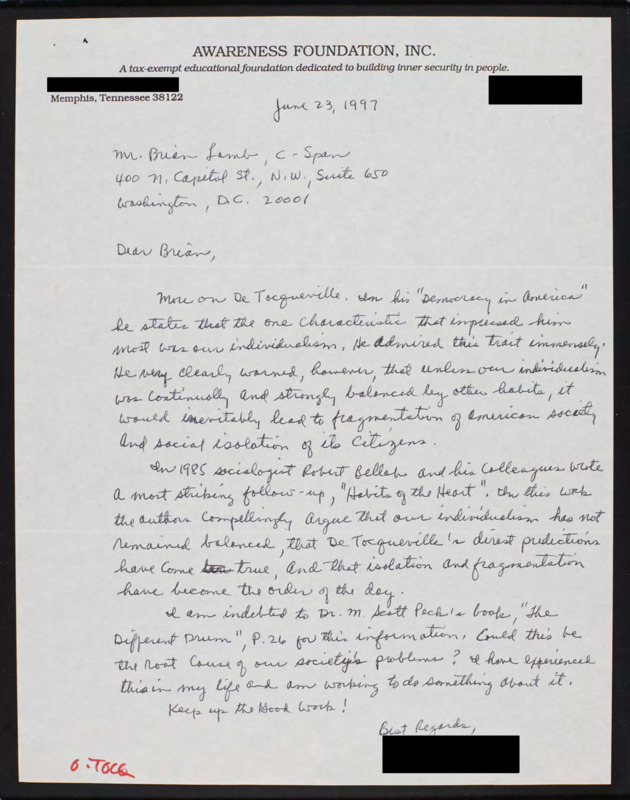 AWARENESS FOUNDATION, INC.
A tax-exempt educational foundation dedicated to building inner security in people.
Memphis, Tennessee 38122
June 23, 1997
Mr. Brian Lamb, C-Span
400 N. Capitol St., N.W., Suite 650
Washington, D.C. 20001
Dear Brian,
More on De Tocqueville. In his "Democracy in America"
he states that the one characteristic that impressed him
most was our individualism. He admired this trait immensely.
He very clearly warned, however, that unless our individualism
was continually and strongly balanced by other habits, it
would inevitably lead to fragmentation of American society
and social isolation of its citizens.
In 1985 sociologist Robert Bellah and his colleagues wrote
a most striking follow-up, "Habits of the Heart". In this work
the authors compellingly argue that our individualism has not
remained balanced, that De Tocqueville's direst predictions
have come true, and that isolation and fragmentation
have become the order of the day.
I am indebted to Dr. M. Scott Peck's book, "The
Different Drum", P. 26 for this information. Could this be
the root cause of our society's problems? I have experienced
this in my life and am working to do something about it.
Keep up the Good Work!
Best Regards,
O-TOCQ